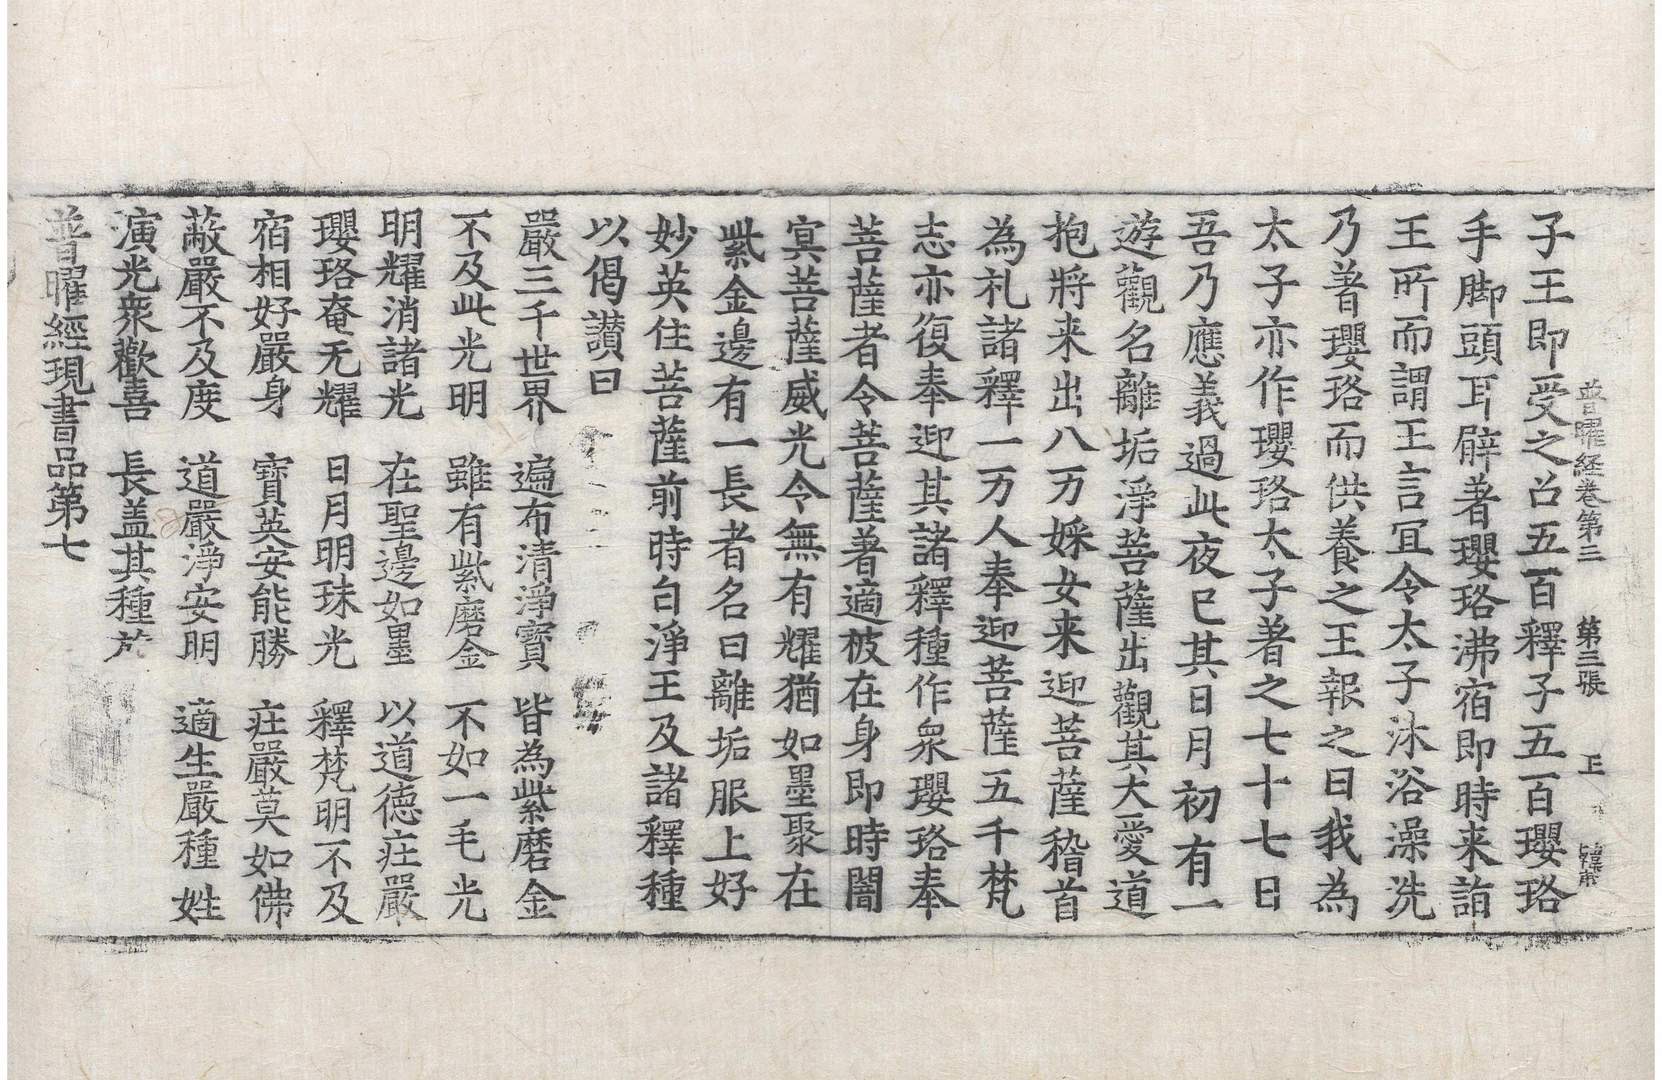 普曜経巻第三　第三張　正
子王即受之召五百釋子五百瓔珞
手脚頭耳臂著瓔珞沸宿即時来詣
王所而謂王言冝令太子沐浴澡洗
乃著瓔珞而供養之王報之曰我為
太子亦作瓔珞太子著之七十七日
吾乃應義過此夜已其日月初有一
遊觀名離垢淨菩薩出觀其大愛道
抱將来出八万婇女来迎菩薩稽首
為礼諸釋一万人奉迎菩薩五千梵
志亦復奉迎其諸釋種作衆瓔珞奉
菩薩者令菩薩著適被在身即時闇
冥菩薩威光令無有耀猶如墨聚在
紫金邊有一長者名曰離垢服上好
妙英住菩薩前時白淨王及諸釋種
以偈讃曰
嚴三千世界　遍布清淨寶　皆為紫磨金
不及此光明　雖有紫磨金　不如一毛光
明耀消諸光　在聖邊如墨　以道徳莊嚴
瓔珞奄无耀　日月明珠光　釋梵明不及
宿相好嚴身　寶英安能勝　莊嚴莫如佛
蔽嚴不及度　道嚴淨安明　適生嚴種姓
演光衆歡喜　長益其種
普曜經現書品第七